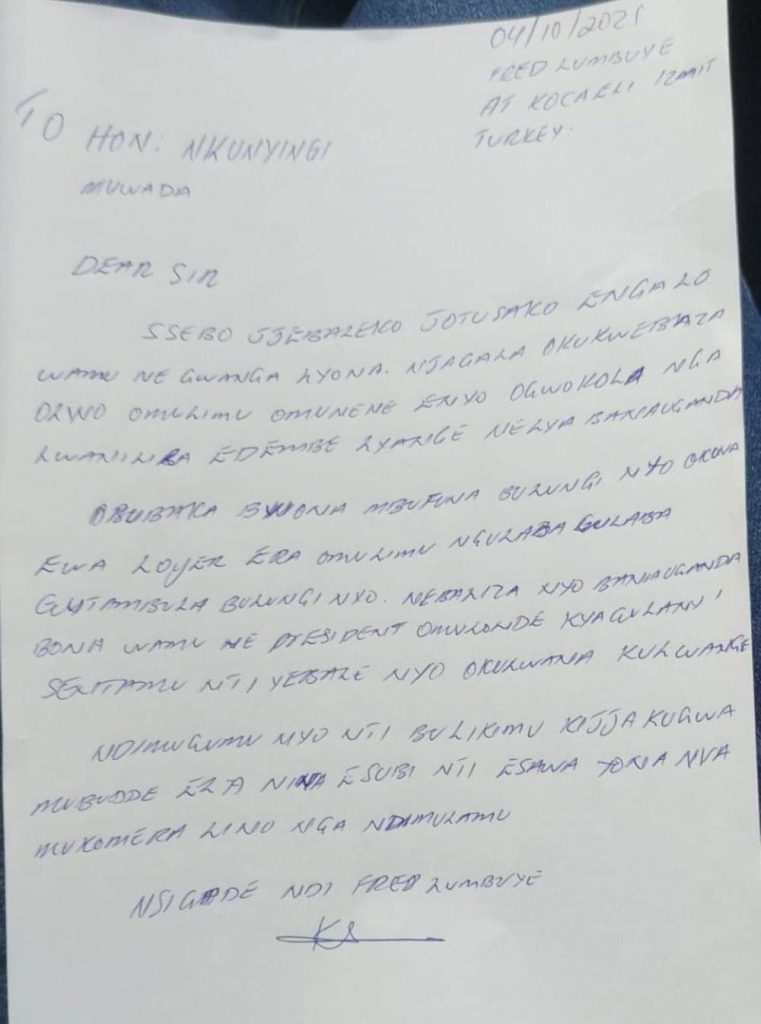 04/10/2021
FRED LUMBUYE
AT KOCAELI IZMIT
TURKEY.
TO HON: NKUNYINGI
MUWADA
DEAR SIR
SSEBO JJEBALEKO JOTUSAKO ENGALO
WAMU NE GWANGA LYONA. NJAGALA OKUKWEBAZA
OLWO OMULIMU OMUNENE ENYO OGWOKOLA NGA
LWANILILA EDEMBE LYANGE NELYA BANAUGANDA
OBUBAKA BWONA MBUFUNA BULUNGI NYO OKUVA
EWA LOYER ERA OMULIMU NGULABA GULABA
GUTAMBULA BULUNGI NYO. NEBAZIZA NYO BANAUGANDA
BONA WAMU NE PRESIDENT OMULONDE KYAGULANYI
SENTAMU NTI YEBALE NYO OKULWANA KULWANGE
NDIMUGUMU NYO NTI BULIKIMU KIJJA KUGWA
MUBUDDE ERA NINA ESUBI NTI ESAWA YONA NVA
MUKOMERA LINO NGA NDIMULAMU
NSIGADE NDI FRED LUMBUYE